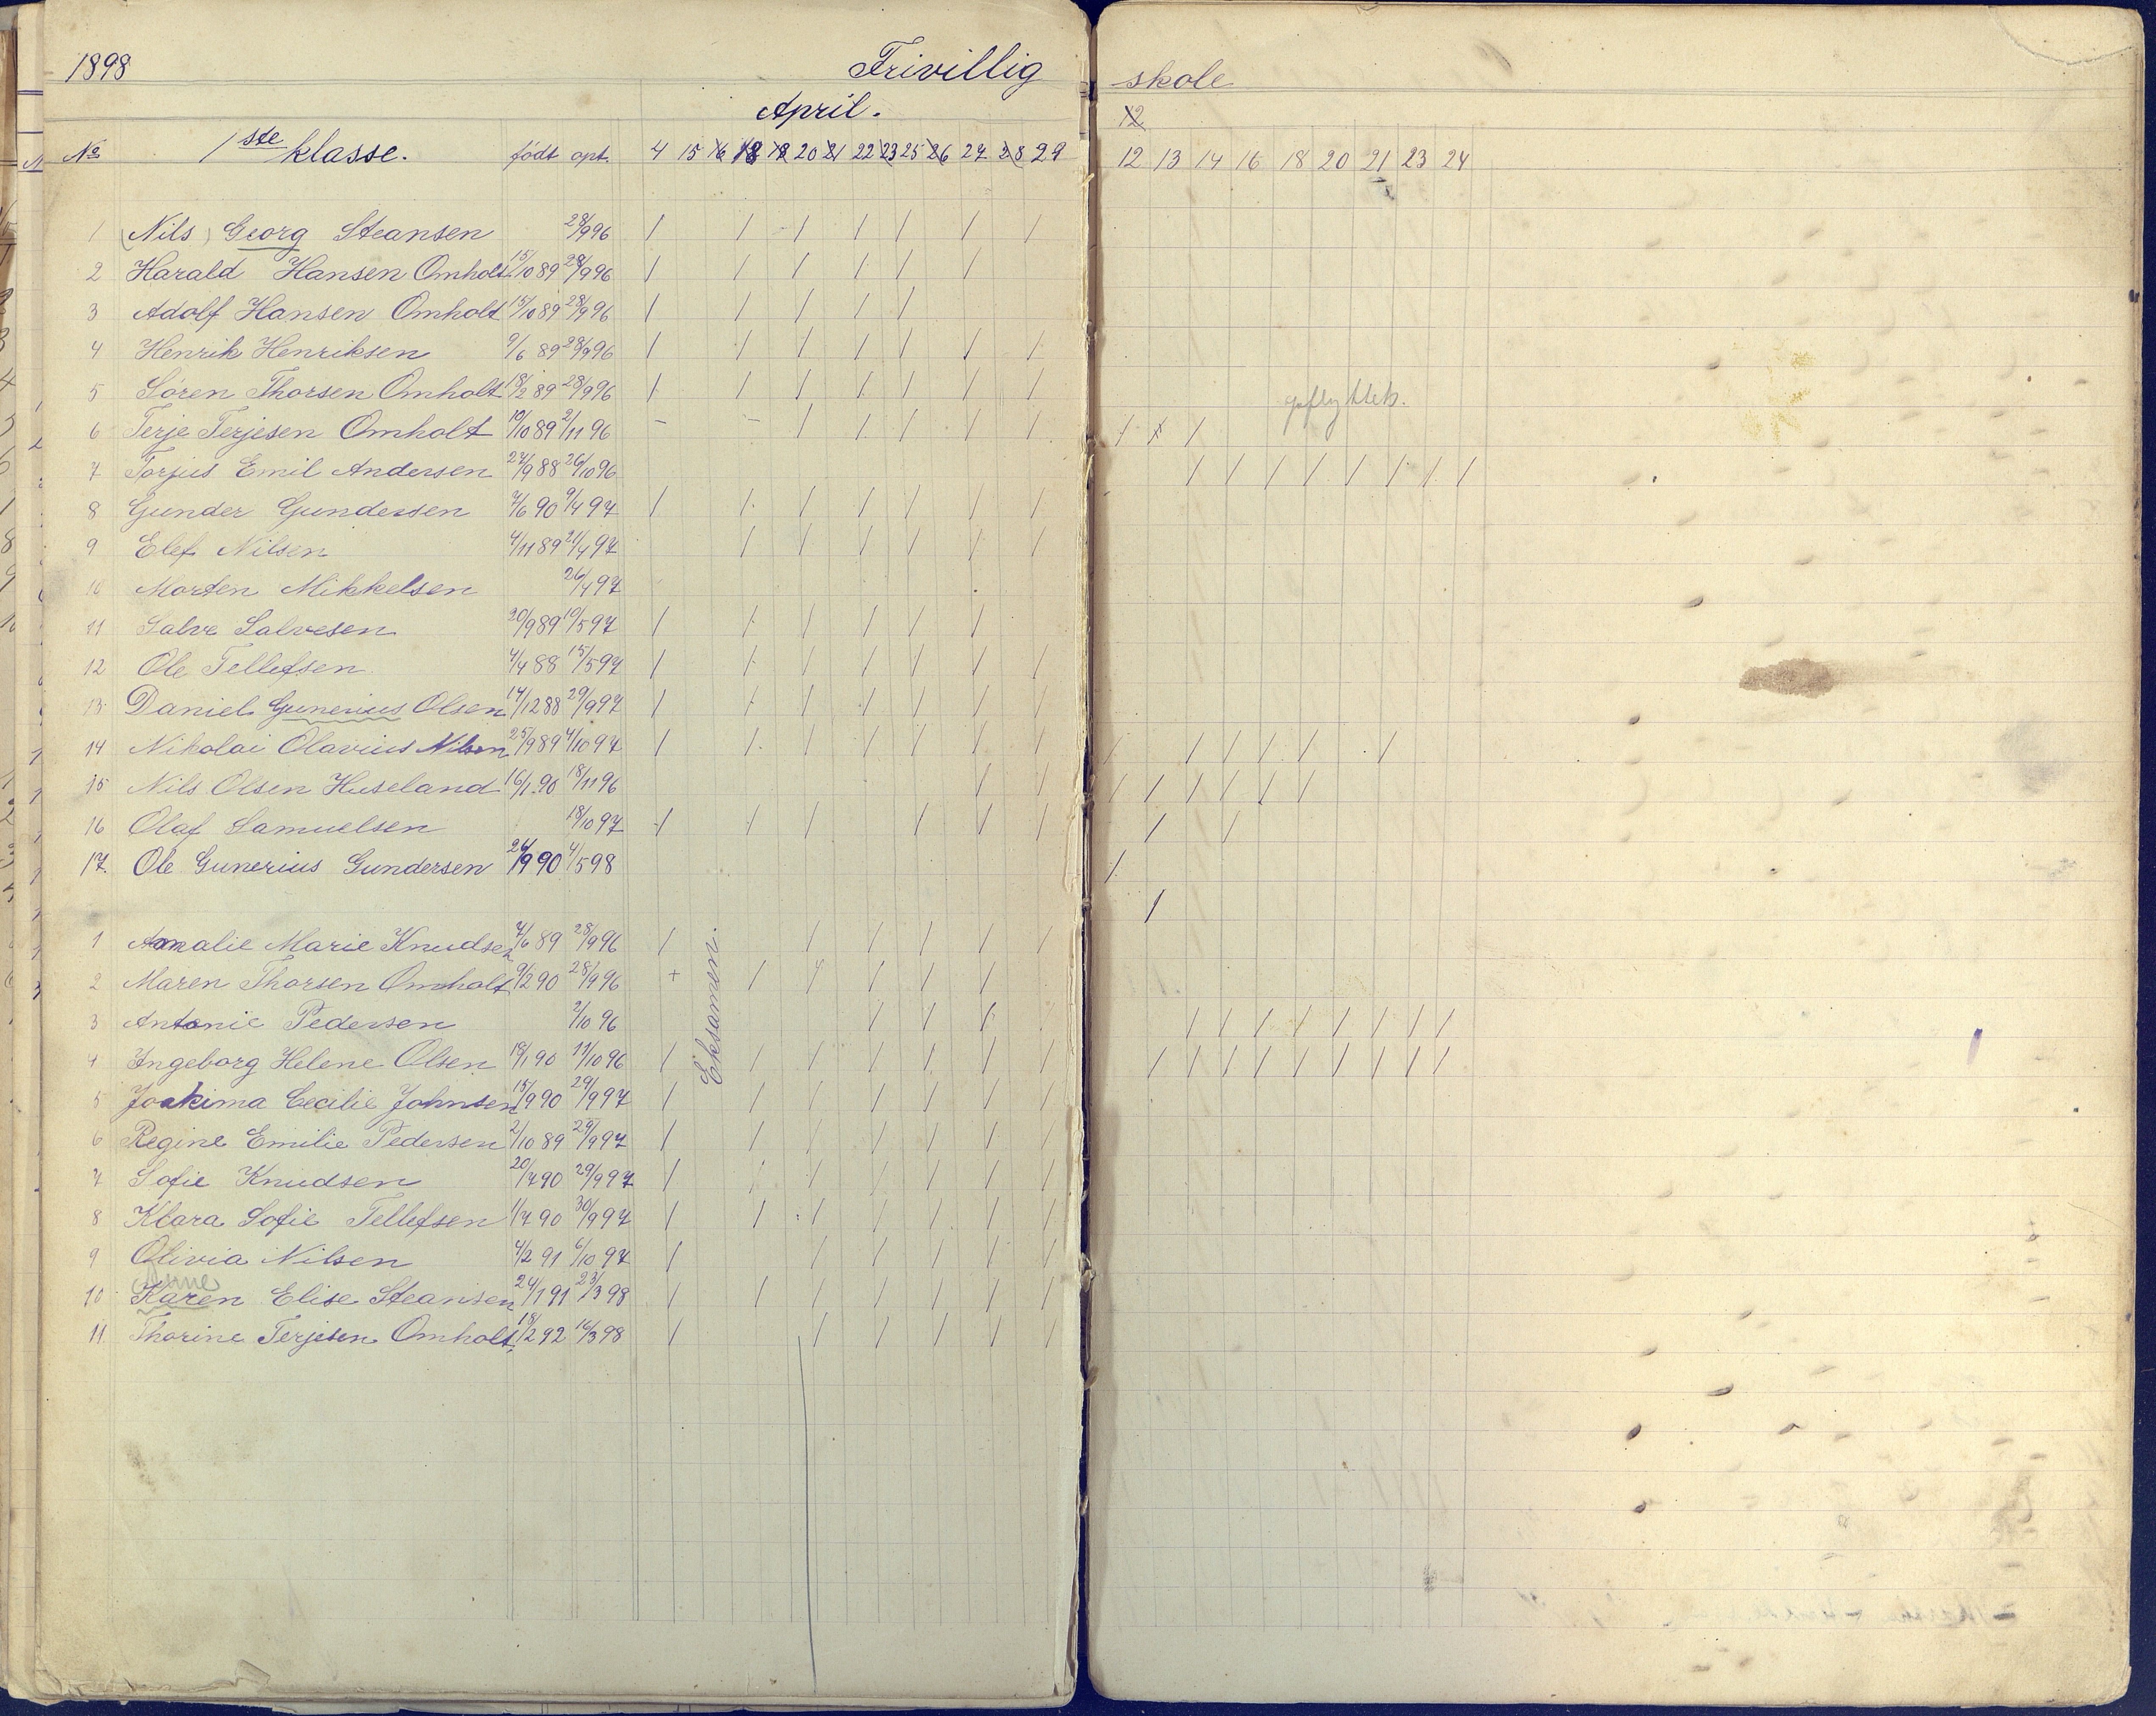 1898 Frivillig skole
April.
12
No 1ste klasse. født opt. 4 15 16 18 19 20 21 22 23 25 26 27 28 29
12 13 14 16 18 20 21 23 24
1 (Nils) Georg Steansen 28/9 96
2 Harald Hansen Omholt 15/10 89 28/9 96
3 Adolf Hansen Omholt 15/10 89 28/9 96
4 Henrik Henriksen 9/6 89 28/9 96
5 Sören Thorsen Omholt 18/2 89 28/9 96
6 Terje Terjesen Omholt 10/10 89 2/11 96
7 Torjus Emil Andersen 27/9 88 26/10 96
8 Gunder Gundersen 7/6 90 9/4 97
9 Elef Nilsen 4/11 89 21/4 97
10 Morten Mikkelsen 26/4 97
11 Salve Salvesen 20/9 89 10/5 97
12 Ole Tellefsen 4/4 88 15/5 97
13 Daniel Gunerius Olsen 14/12 88 29/9 97
14 Nikolai Olavius Nilsen 25/9 89 4/10 97
15 Nils Olsen Huseland 16/1 90 18/11 96
16 Olaf Samuelsen 18/10 97
17. Ole Gunerius Gundersen 26/9 90 4/5 98
Eksamen.
1 Amalie Marie Knudsen 7/6 89 28/9 96
2 Maren Thorsen Omholt 9/2 90 28/9 96
3 Antonie Pedersen 2/10 96
4 Ingeborg Helene Olsen 19/1 90 11/10 96
5 Joakima Cecilie Johnsen 15/9 90 29/9 97
6 Regine Emilie Pedersen 2/10 89 29/9 97
7 Sofie Knudsen 20/7 90 29/9 97
8 Klara Sofie Tellefsen 1/7 90 30/9 97
9 Olivia Nilsen 4/2 91 6/10 97
Anne
10 Karen Elise Steansen 24/1 91 23/3 98
11. Thorine Terjesen Omholt 18/2 92 16/3 98